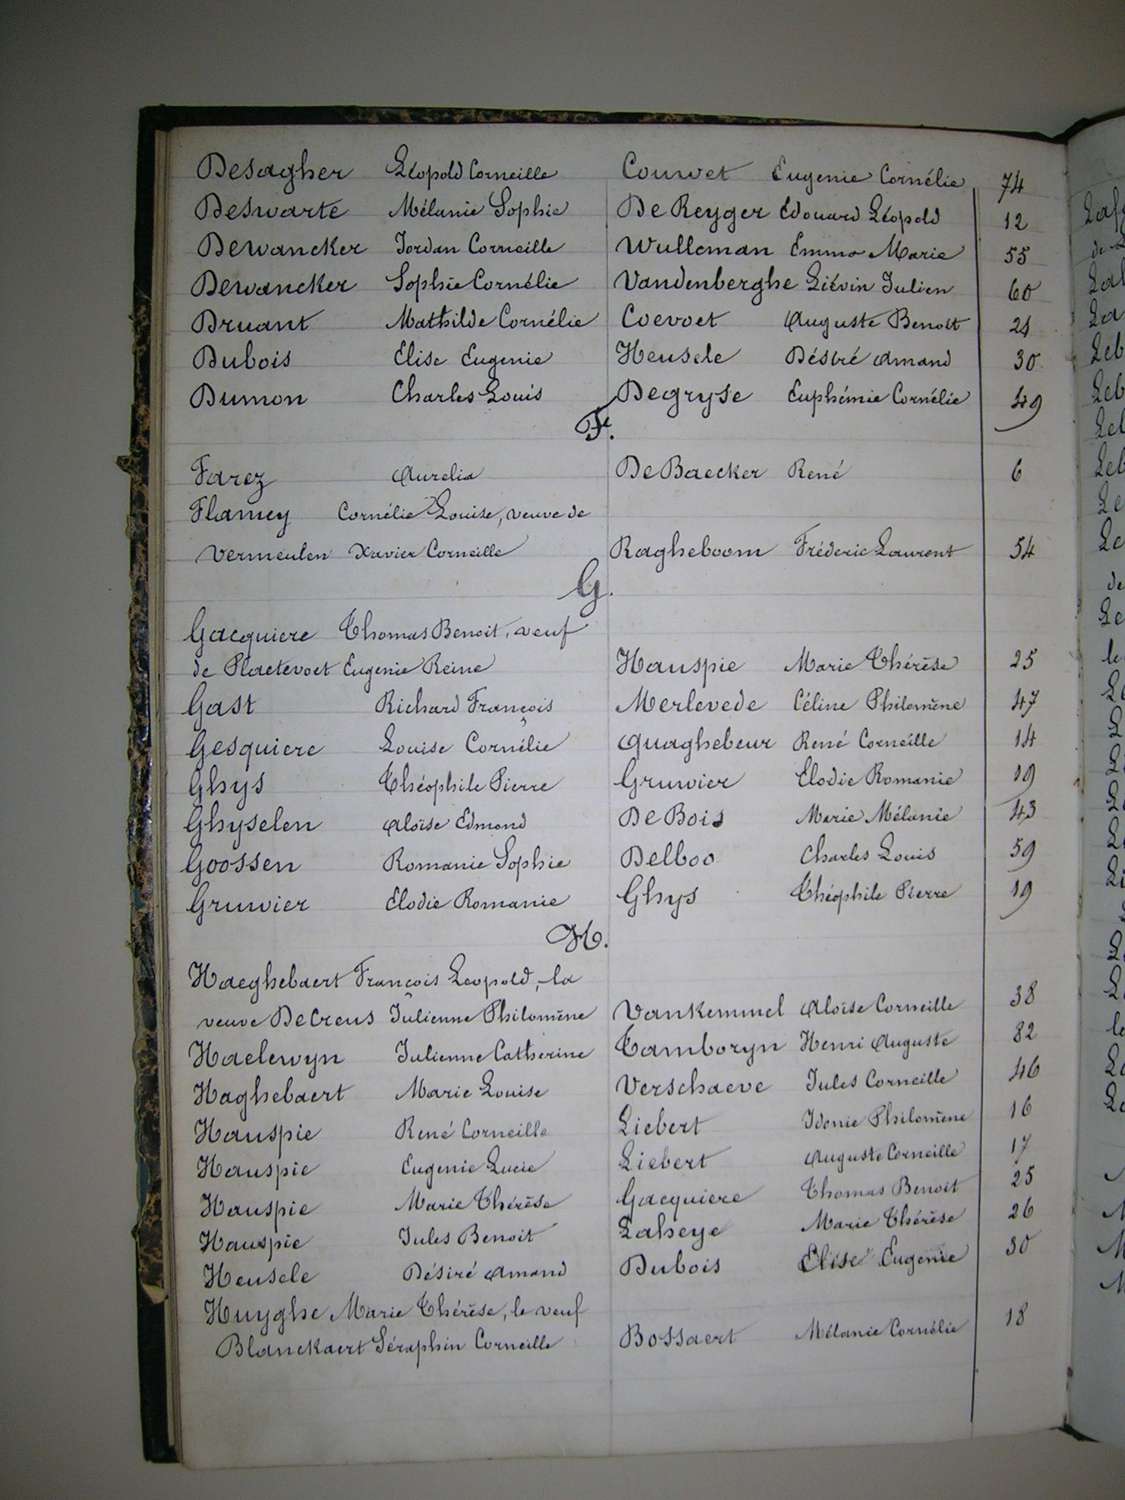 Desagher Léopold Corneille Couwet Eugenie Cornélie 74
Deswarte Mélanie Sophie De Reyger Edouard Léopold 12
Dewancker Jordan Corneille Wulleman Emma Marie 55
Dewancker Sophie Cornélie Vandenberghe Liévin Julien 60
Druant Mathilde Cornélie Coevoet Auguste Benoit 21
Dubois Elise Eugenie Heusele Désiré Amand 30
Dumon Charles Louis Degryse Euphémie Cornélie 49
F.
Farez Aurelia De Baecker René 6
Flamey Cornélie Louise, veuve de
Vermeulen Xavier Corneille Ragheboom Fréderic Laurent 54
G.
Gacquiere Thomas Benoit, veuf
de Plaetevoet Eugenie Reine Hauspie Marie Thérèse 25
Gast Richard François Merlevede Céline Philomène 47
Gesquiere Louise Cornélie Quaghebeur René Corneille 14
Ghys Théophile Pierre Gruwier Elodie Romanie 19
Ghyselen Aloïse Edmond De Bois Marie Mélanie 43
Goossen Romanie Sophie Delboo Charles Louis 59
Gruwier Elodie Romanie Ghys Théophile Pierre 19
H.
Haeghebaert François Leopold, la
veuve DeCreus Julienne Philomène Vankemmel Aloïse Corneille 38
Haelewyn Julienne Catherine Tamboryn Henri Auguste 82
Haghebaert Marie Louise Verschaeve Jules Corneille 46
Hauspie René Corneille Liebert Idonie Philomène 16
Hauspie Eugenie Lucie Liebert Auguste Corneille 17
Hauspie Marie Thérèse Gacquiere Thomas Benoit 25
Hauspie Jules Benoit Laheye Marie Thérèse 26
Heusele Désiré Amand Dubois Elise Eugenie 30
Huyghe Marie Thérèse, le veuf
Blanckaert Séraphin Corneille Bossaert Mélanie Cornélie 18